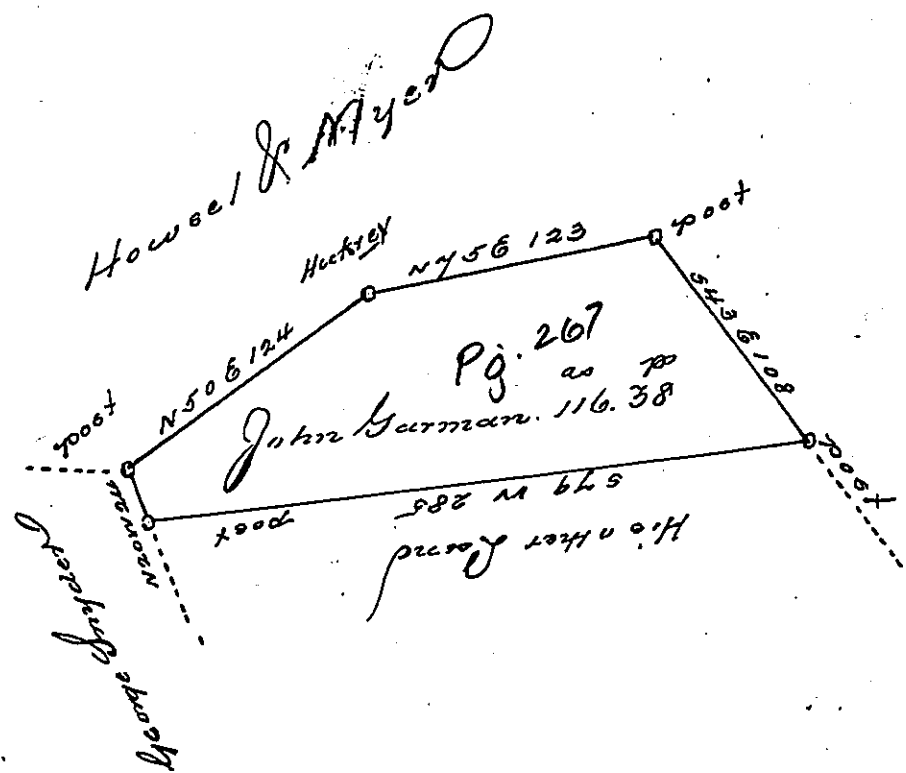 Howsel & Myer
Hickrey
N75E 123
post
S43E 108
N50E 124
Pg. 267
as ps
John Garman. 116.38
post
post
S79 W 285
post
N20W 24
His other Land
George Snyder